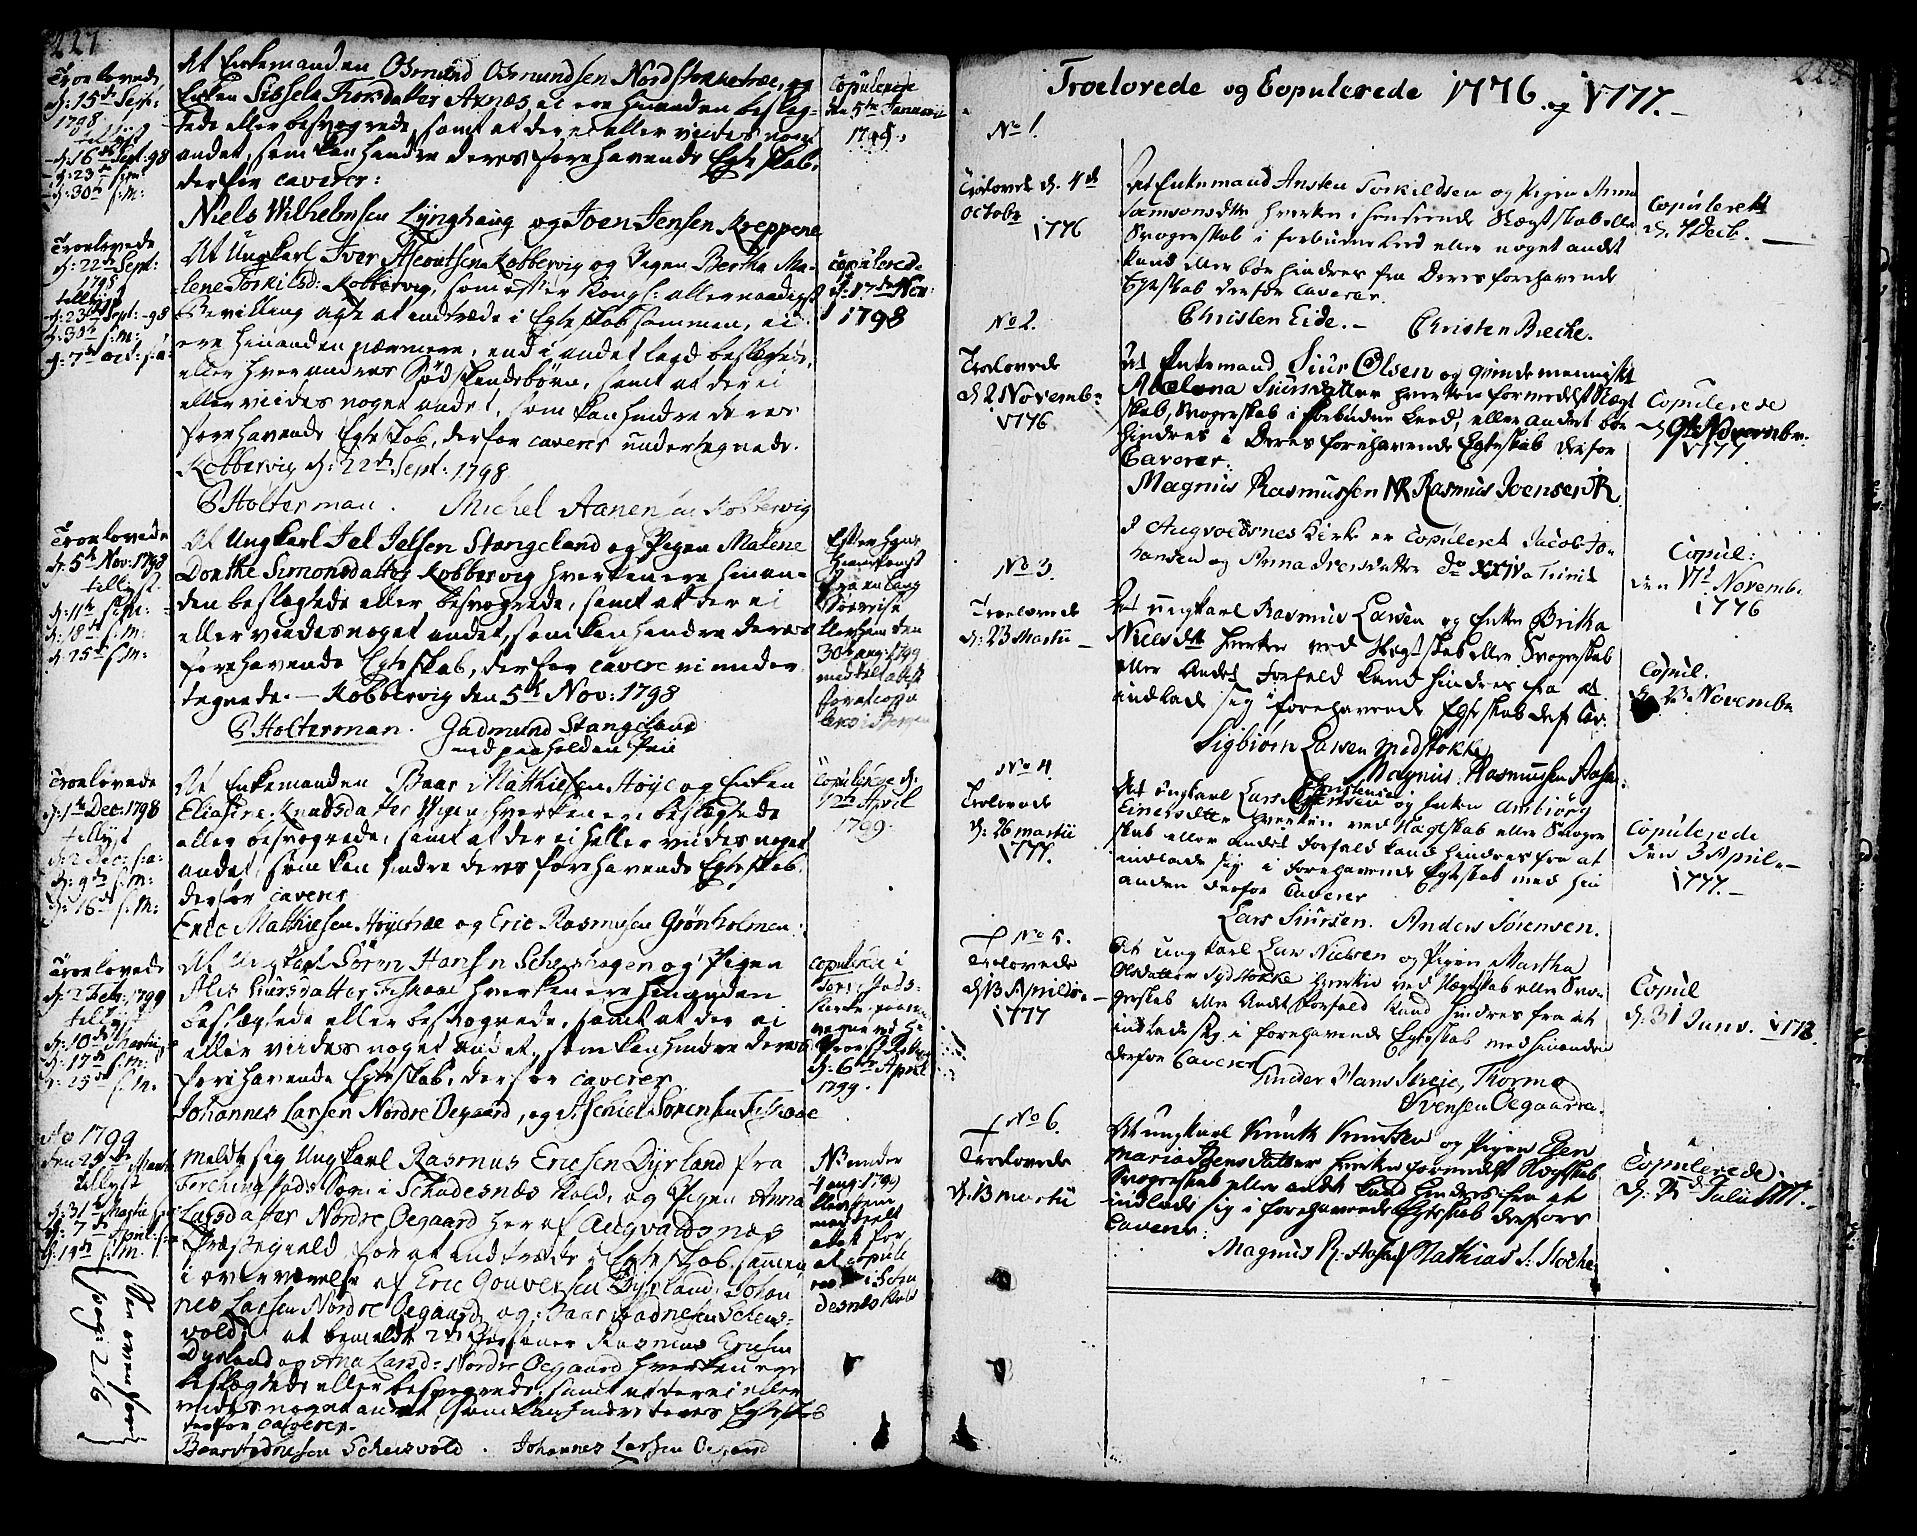 227
Troelovede
d: 15de Sept:
1798
tillyst
d: 16de Sept: 98
d: 23de s: m:
d: 30te s: m:
At Enkemanden Osmund Osmundsen Nordstokketræe, og
Enken Sissela Thorsdatter Axnæs, ei ere hinanden beslæg-
tede eller besvogrede, samt at der ei eller viides noget
andet, som kan hindre deres forehavende Egteskab,
derfor caverer:
Niels Wilhelmsen Lynghaug og Joen Jensen Kreppene
Copulerede
den 5te Januarii
1798
Troelovede
d: 22de Sept:
1798
tillyst
d: 23de Sept: 98
d: 30te s: m:
d: 7de Oct: s: a:
At Ungkarl Iver Sjeoutsen Kobbervig og Pigen Bertha Ma-
lene Torkilsd: Kobbervig, som efter Kongl: allernaadigst
Bevilling agte at indtræde i Egteskab sammen, ei
ere hinanden nærmere, end i andet leed beslægtede,
eller hverandres Sødskendebørn, samt at der ei
eller viides noget andet, som kan hindre deres
forehavende Egteskab, derfor caverer undertegnede.
Kobbervig d: 22de Sept: 1798
P Holterman. Michel Aanensen Kobbervig
Copulerede
d: 17de Nov:
1798
Troelovede
d: 5te Nov: 1798
tillyst
d: 11te s: m:
d: 18de s: m:
d: 25de s: m:
At Ungkarl Jel Jelsen Stangeland og Pigen Malene
Dorthe Simonsdatter Kobbervig hverken ere hinan-
den beslægtede eller besvogrede, samt at der ei
eller viides noget andet, som kan hindre deres
forehavende Egteskab, derfor cavere vi under-
tegnede. - Kobbervig den 5te Nov: 1798
P Holterman. Gudmund Stangeland
med paaholden Pen
Efter hans
hiemkomst
fra en lang
30te aug: 1799
Troelovede
d: 1ste Dec: 1798
tillyst
d: 2 Dec: s: a:
d: 9de s: m:
d: 16de s: m:
At Enkemanden Baar Mathiesen Høye og Enken
Eliasine Knudsdatter Viigen hverken ere beslægtede
eller besvogrede, samt at der ei heller viides noget
andet, som kan hindre deres forehavende Egteskab,
derfor caverer
Eric Mathiesen Høyetræe og Eric Rasmusen Grønholmen:
Copulerede d:
12te April
1799.
Troelovede
d: 2 Febr: 1799
tillyst
d: 10de Martii
d: 17de s: m:
d: 25de s: m:
At Ungkarl Søren Hansen Scheishagen og Pigen
Alis Siursdatter Fiskaae hverken ere hinanden
beslægtede eller besvogrede, samt at der ei
eller viides noget andet, som kan hindre deres
forehavende Egteskab, derfor caverer
Johannes Larsen Nordre Øegaard, og Aschiel Sørensen Fiskaae
Copulerede i
d: 6te April
1799.
Ao 1799
den 25de Martii
tillyst
d: 31te Martii s: a:
d: 7de April s: a:
d: 14de s: m:
(See ovenfor
pag: 216)
Meldte sig Ungkarl Rasmus Ericsen Dyrland fra
Ferchingstads Sogn i Schudesnæs Kold, og Pigen Anna
Larsdatter Nordre Øegaard her af Augvaldsnæs
Præstegield, for at indtræde i Egteskab sammen
i overværelse af Eric Gouversen Dyrland, Johan-
nes Larsen Nordre Øegaard og Baar Sadnesen Scheis-
vold: at bemeldte 2de Personer Rasmus Ericsen
Dyrland og Ana Larsd: Nordre Øegaard hverken ere
beslægtede eller besvogrede, samt at der ei eller
viides noget andet, som kan hindre deres Egteskab
derfor caverer.
Baar Sadnesen Scheisvold. Johannes Larsen Øegaard
NB under
4 aug: 1799
meddeelt
attest for
at copule-
res i Schu-
desnæs Kold
223
Troelovede og Copulerede 1776 og 1777.-
No 1.
Trolovede d. 4de
Octobr
1776
At Enkemand Ansten Torkildsen og Pigen Anna
Samsonsdtr hverken i henseende Slægtskab eller
Svogerskab i forbudne Leed eller noget andet
kand eller bør hindres fra Deres forehavende
Egteskab derfor caverer.
Christen Eide. - Christen Brecke.
Copulerett
d. 7 Decb. -
No 2.
Trolovede
d. 2 Novembr
1776
At Enkemand Siur Olsen og qvindemenniske
Abelona Siursdatter hverken formedelst Slægt-
skab, Svogerskab i forbudne Leed, eller andet bør
hindres i Deres forehavende Egteskab derfor
Caverer:
Magnus Rasmussen MR Rasmus Joensen JR
Copulerede
d 9de Novembr.
1777
I Augvoldsnes Kirke er Copuleret Jacob Jo-
hansen og Anna Iversdatter do XXIV a Trinit
Copul:
den 17de Novembr.
1776
No 3.
Troelovede
d: 23 Martii -
At ungkarl Rasmus Larsen og Enke Britha
Nielsdtr hverken ved Slægtskab eller Svogerskab
eller Andet Forfald kand hindres fra at
indlade sig i forehavende Egteskab derfor Cav:
Sigbiørn Larsen Medstokke
Magnus Rasmussen Hasse:
Copul.
d. 23 Novembr
No 4.
Trolovede
d: 26 Martii
1777.
At ungkarl Lars Christensen og Enken Anbiørg
Einersdtr hverken ved Slægtskab eller Svoger-
skab eller andet Forfald kand hindres fra at
indlade sig i forehavende Egteskab med hin
anden derfor Caverer
Lars Siursen. Anders Sørensen.
Copulerede
den 3 April. -
1777. -
No 5.
Trolovede
d 13 Aprilis. -
1777
At ungkarl Lars Nielsen og Pigen Martha
Olsdatter Sydstokke hverken ved Slægtskab eller Svo-
gerskab eller Andet Forfald kand hindres fra at
indlade sig i forehavende Egteskab med hinanden
derfor Caverer
Peder Hans Streje, Thormo
Svensen Øegaarden.
Copul
d: 31 Juno. 1778.
No 6.
Trolovede
d. 13 Martii
At ungkarl Knuth Knudsen og Pigen Ellen
Maria Jensdatter hverken formedelst Slægtskab
Svogerskab eller andet kand hindres fra at
indlade sig i forehavende Egteskab derfore
Caverer:
Magnus R. Hasse Mathias S: Stocke
Copulerede
d. 2de Julii 1777. -